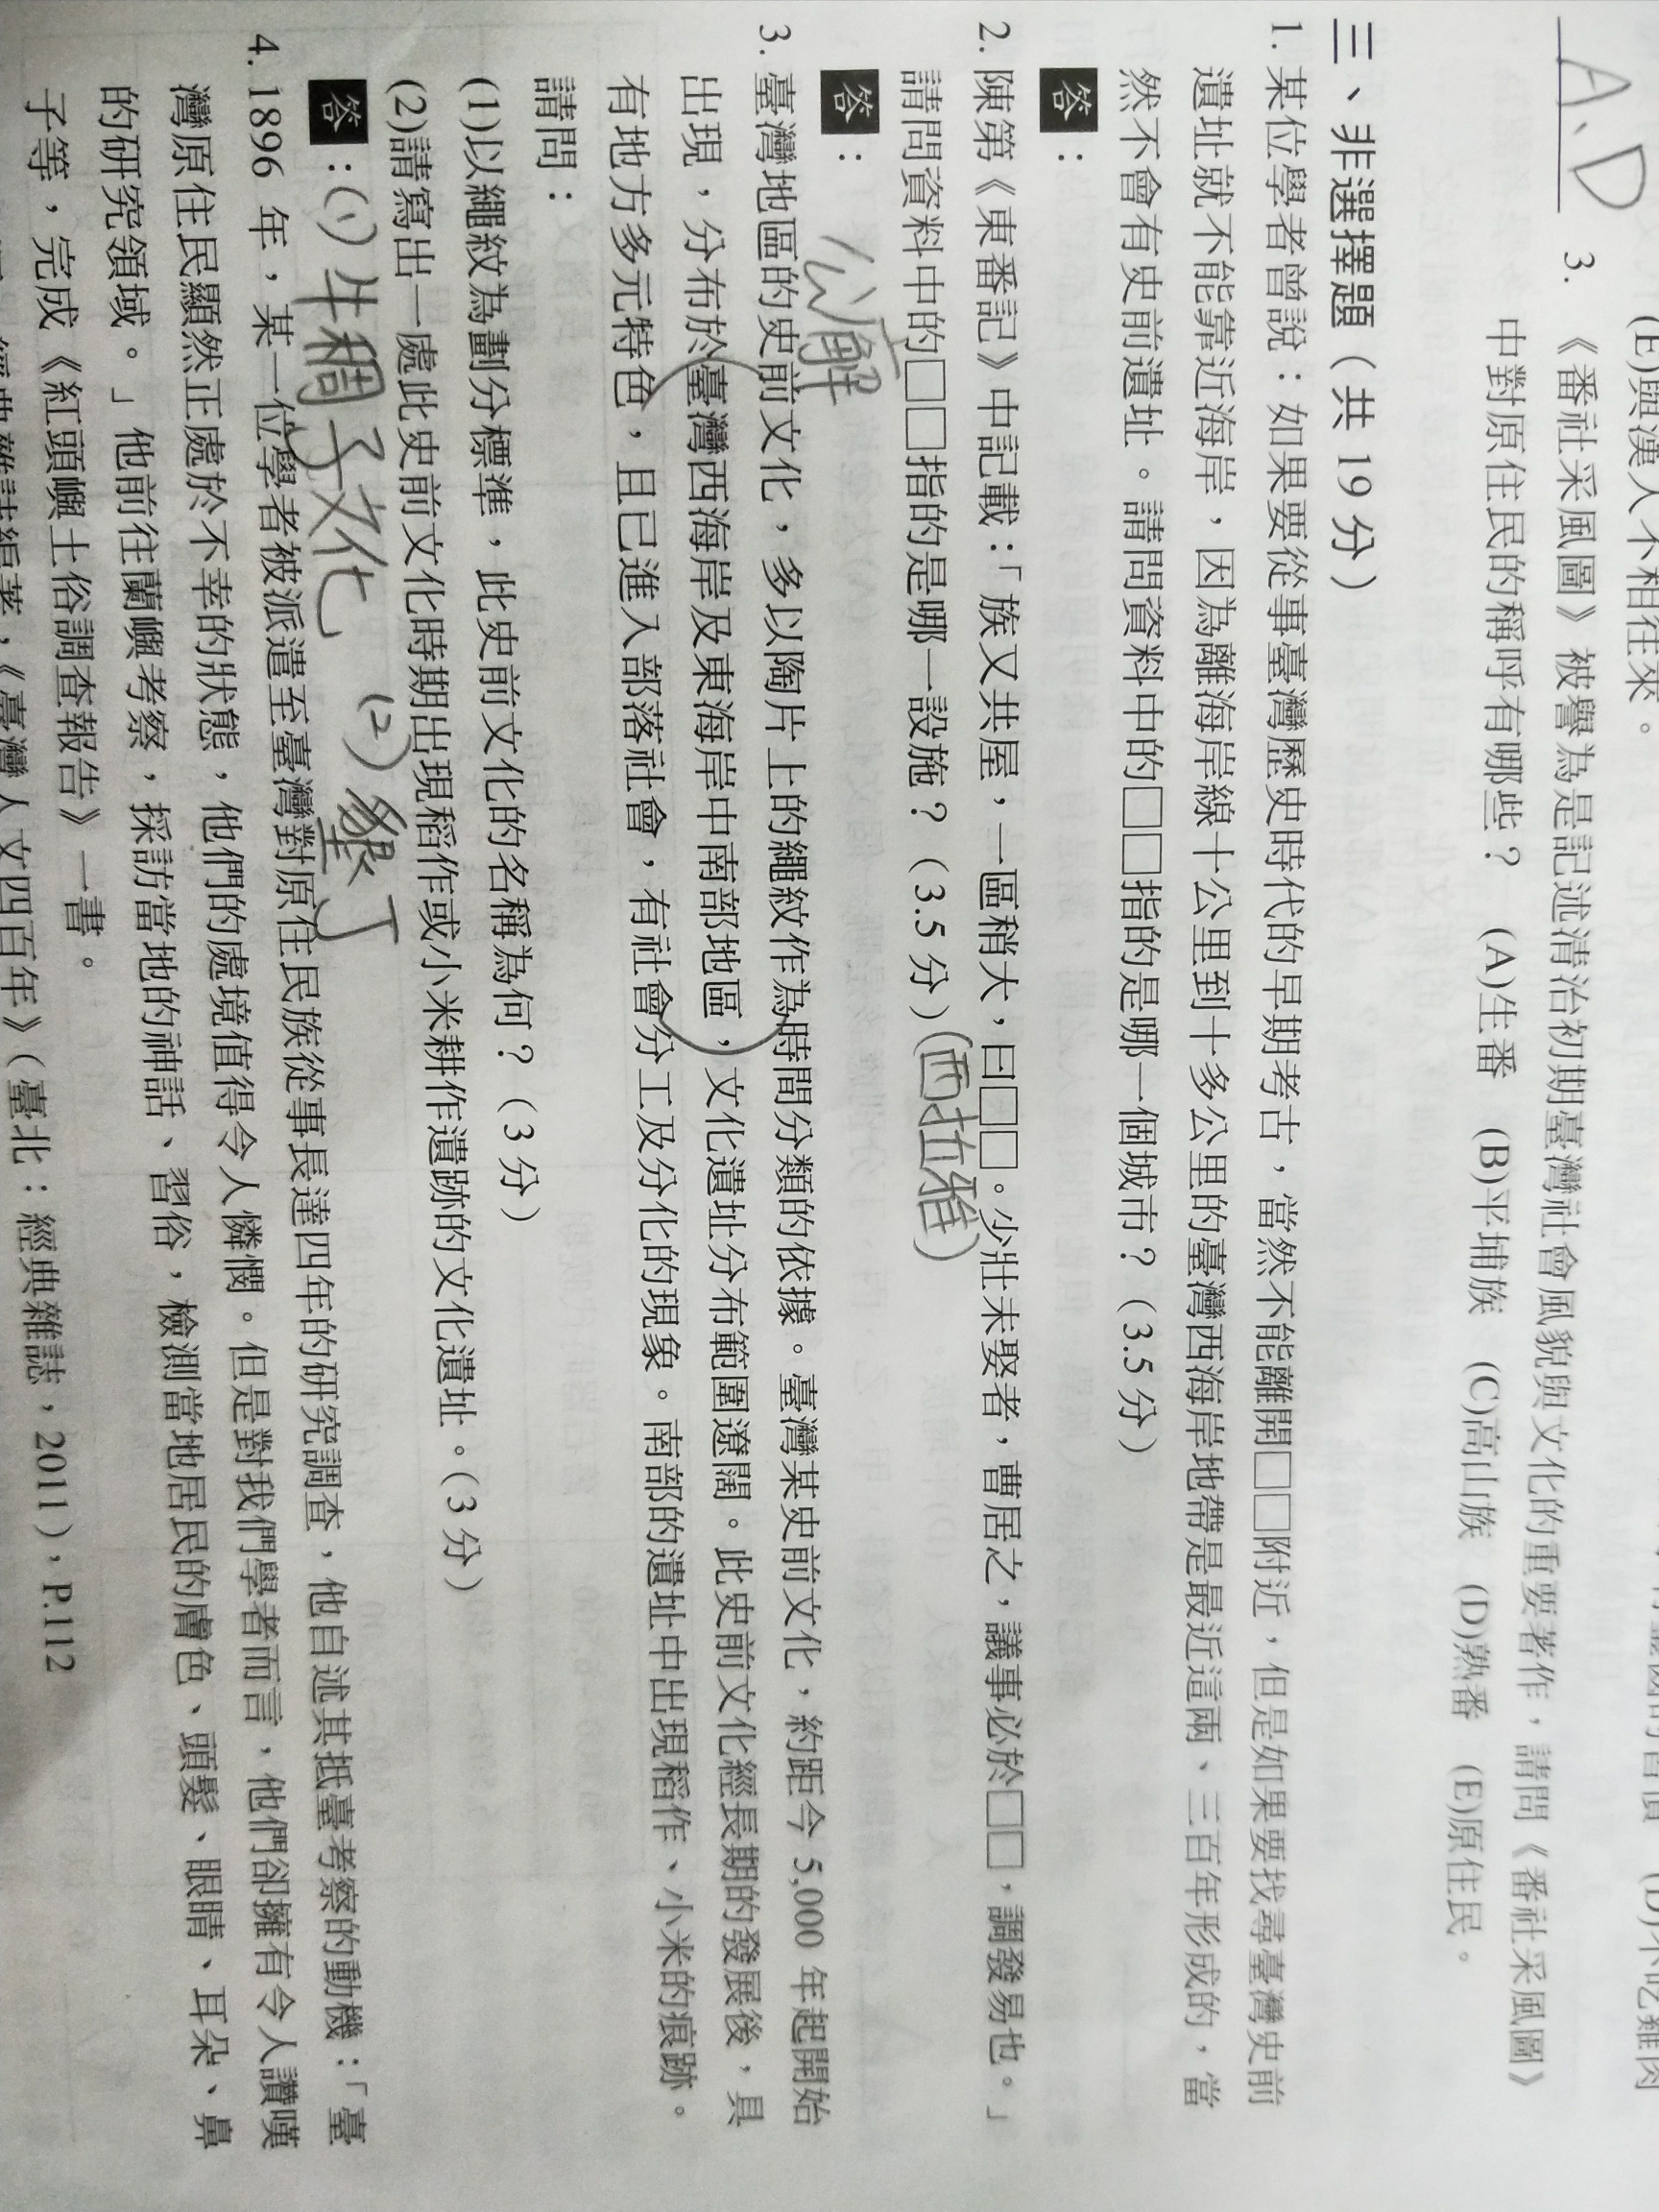 (E)與漢人不相往來。
A、D 3. 《番社采風圖》被譽為是記述清治初期臺灣社會風貌與文化的重要著作，請問《番社采風圖》
中對原住民的稱呼有哪些？ (A)生番 (B)平埔族 (C)高山族 (D)熟番 (E)原住民。
三、非選擇題（共 19 分）
1. 某位學者曾說：如果要從事臺灣歷史時代的早期考古，當然不能離開□□附近，但是如果要找尋臺灣史前
遺址就不能靠近海岸，因為離海岸線十公里到十多公里的臺灣西海岸地帶是最近這兩、三百年形成的，當
然不會有史前遺址。請問資料中的□□指的是哪一個城市？（3.5 分）
答：
2. 陳第《東番記》中記載：「族又共屋，一區稍大，曰□□。少壯未娶者，曹居之，議事必於□□，調發易也。」
請問資料中的□□指的是哪一設施？（3.5 分）(西拉雅)
答： 公廨
3. 臺灣地區的史前文化，多以陶片上的繩紋作為時間分類的依據。臺灣某史前文化，約距今 5,000 年起開始
出現，分布於臺灣西海岸及東海岸中南部地區，文化遺址分布範圍遼闊。此史前文化經長期的發展後，具
有地方多元特色，且已進入部落社會，有社會分工及分化的現象。南部的遺址中出現稻作、小米的痕跡。
請問：
(1)以繩紋為劃分標準，此史前文化的名稱為何？（3 分）
(2)請寫出一處此史前文化時期出現稻作或小米耕作遺跡的文化遺址。（3 分）
答：(1) 牛稠子文化 (2) 墾丁
4. 1896 年，某一位學者被派遣至臺灣對原住民族從事長達四年的研究調查，他自述其抵臺考察的動機：「臺
灣原住民顯然正處於不幸的狀態，他們的處境值得令人憐憫。但是對我們學者而言，他們卻擁有令人讚嘆
的研究領域。」他前往蘭嶼考察，採訪當地的神話、習俗，檢測當地居民的膚色、頭髮、眼睛、耳朵、鼻
子等，完成《紅頭嶼土俗調查報告》一書。
經典雜誌編著，《臺灣人文四百年》（臺北：經典雜誌，2011），P.112